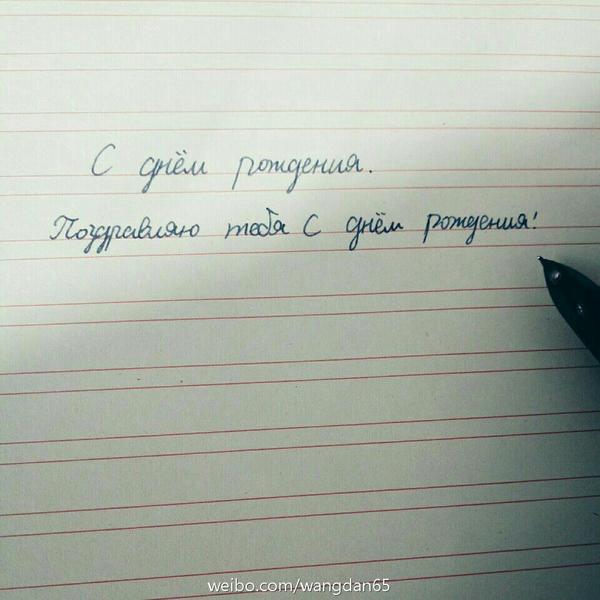 С днём рождения.
Поздравляю тебя С днём рождения!
weibo.com/wangdan65